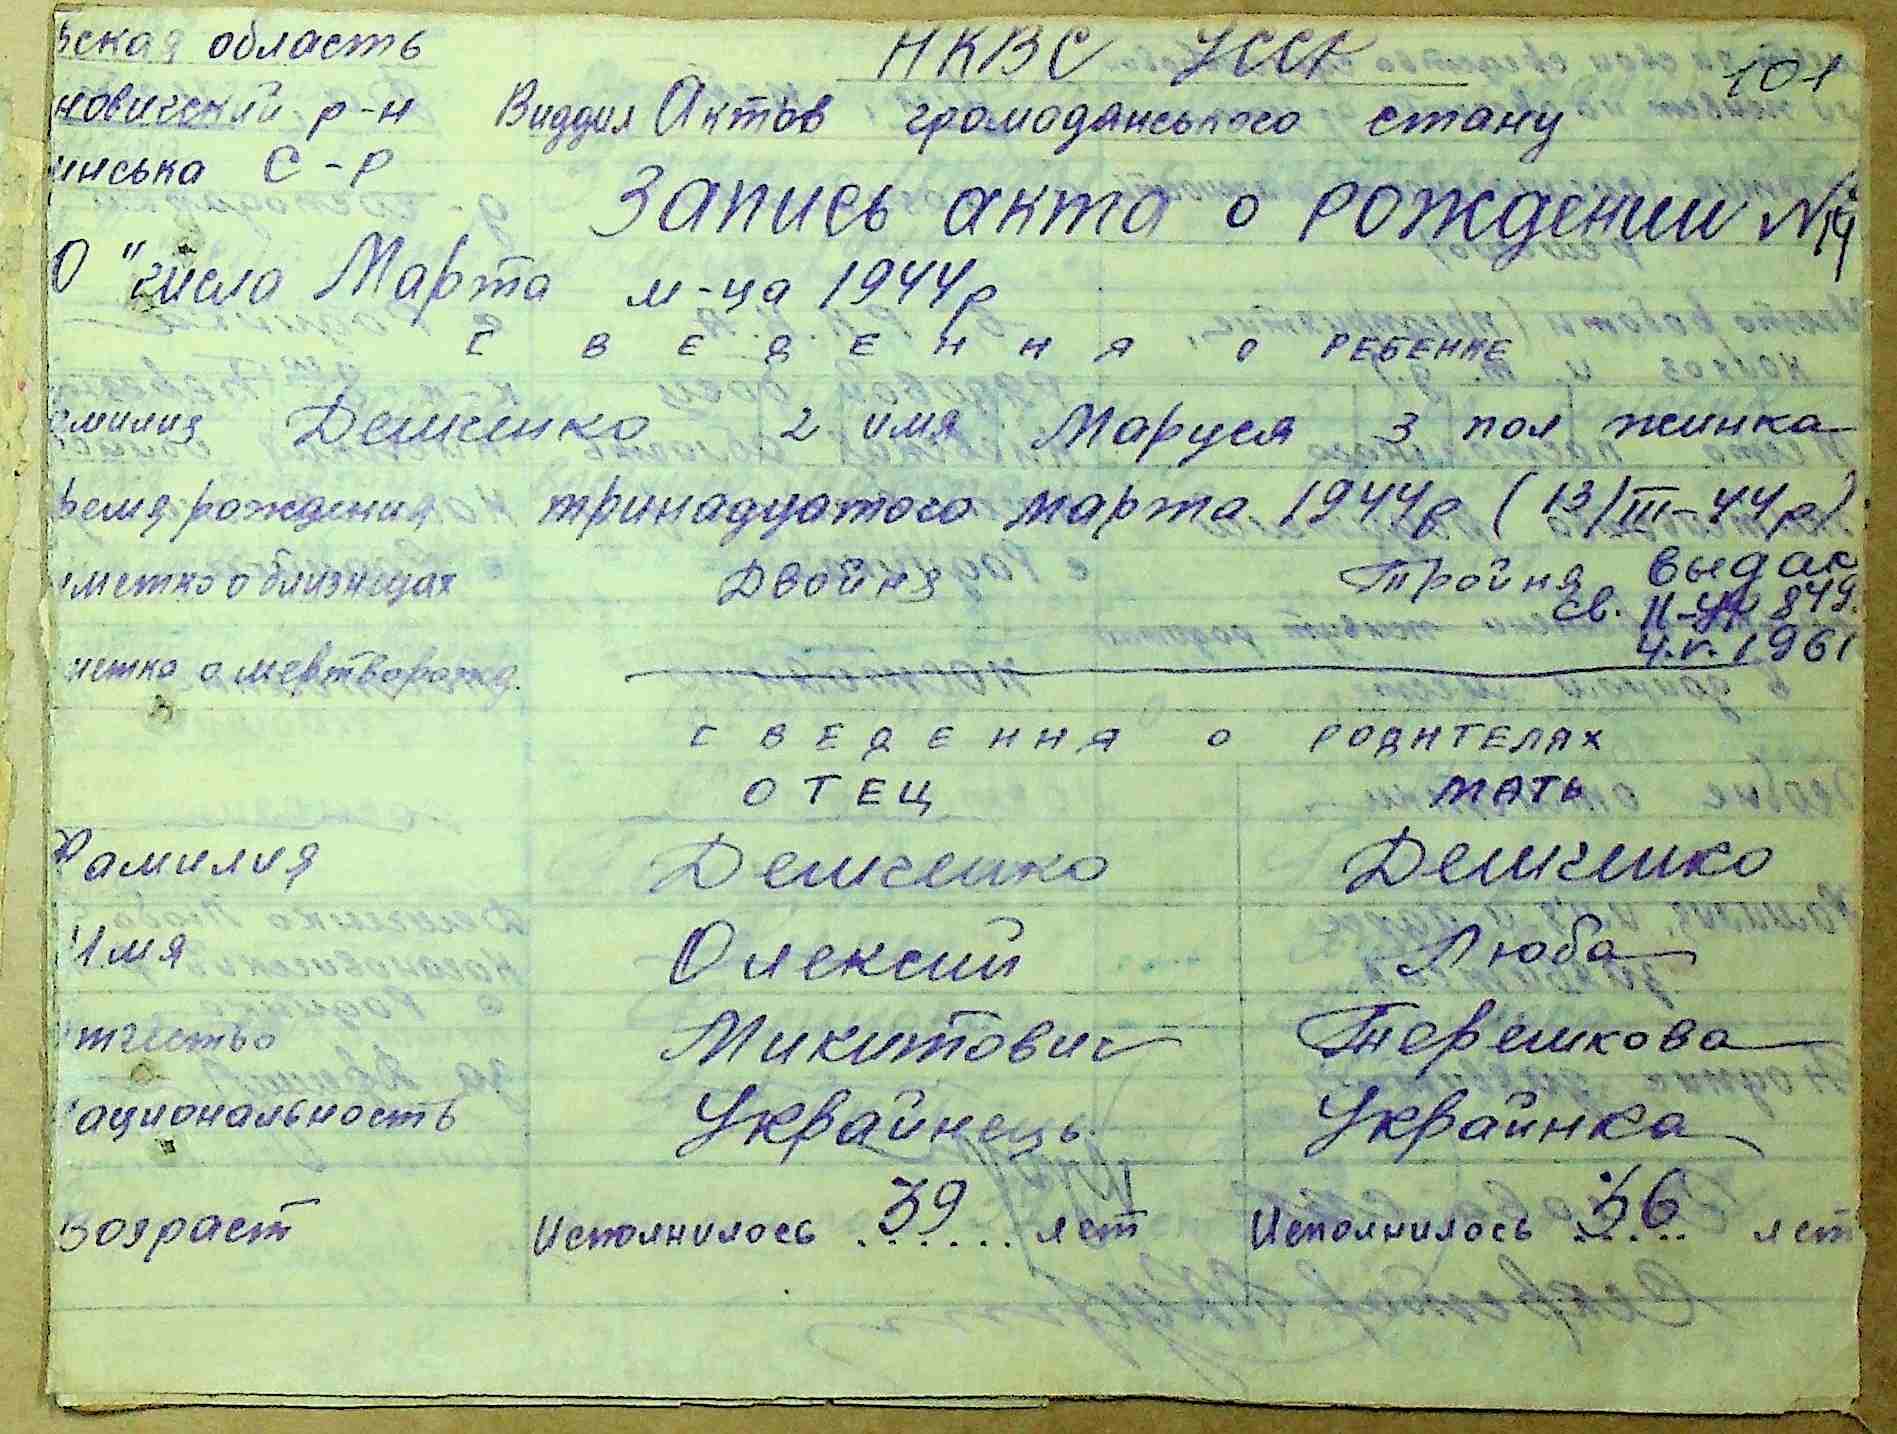 ская область
НКВС УССР
101
новический р-н Виддил Актов громоданського стану
инська С-Р
Запись акта о рождении №
0 "числа Марта м-ца 1944р
сведення о РЕБЕНКЕ
амилия Демченко 2 имя Маруся 3 пол жинка
время рождения тринадцатого марта 1944р (13/III-44р)
метка о близнецах Двойня Тройня выдан
св. II-УК 849.
4.V.1961
метка о мертворожд.
сведення о РОДИТЕЛЯХ
ОТЕЦ МАТЬ
Фамилия Демченко Демченко
Имя Олексий Люба
тчество Микитович Терешкова
ациональность Украйнець Украинка
Возраст Исполнилось 39 лет Исполнилось 36 лет